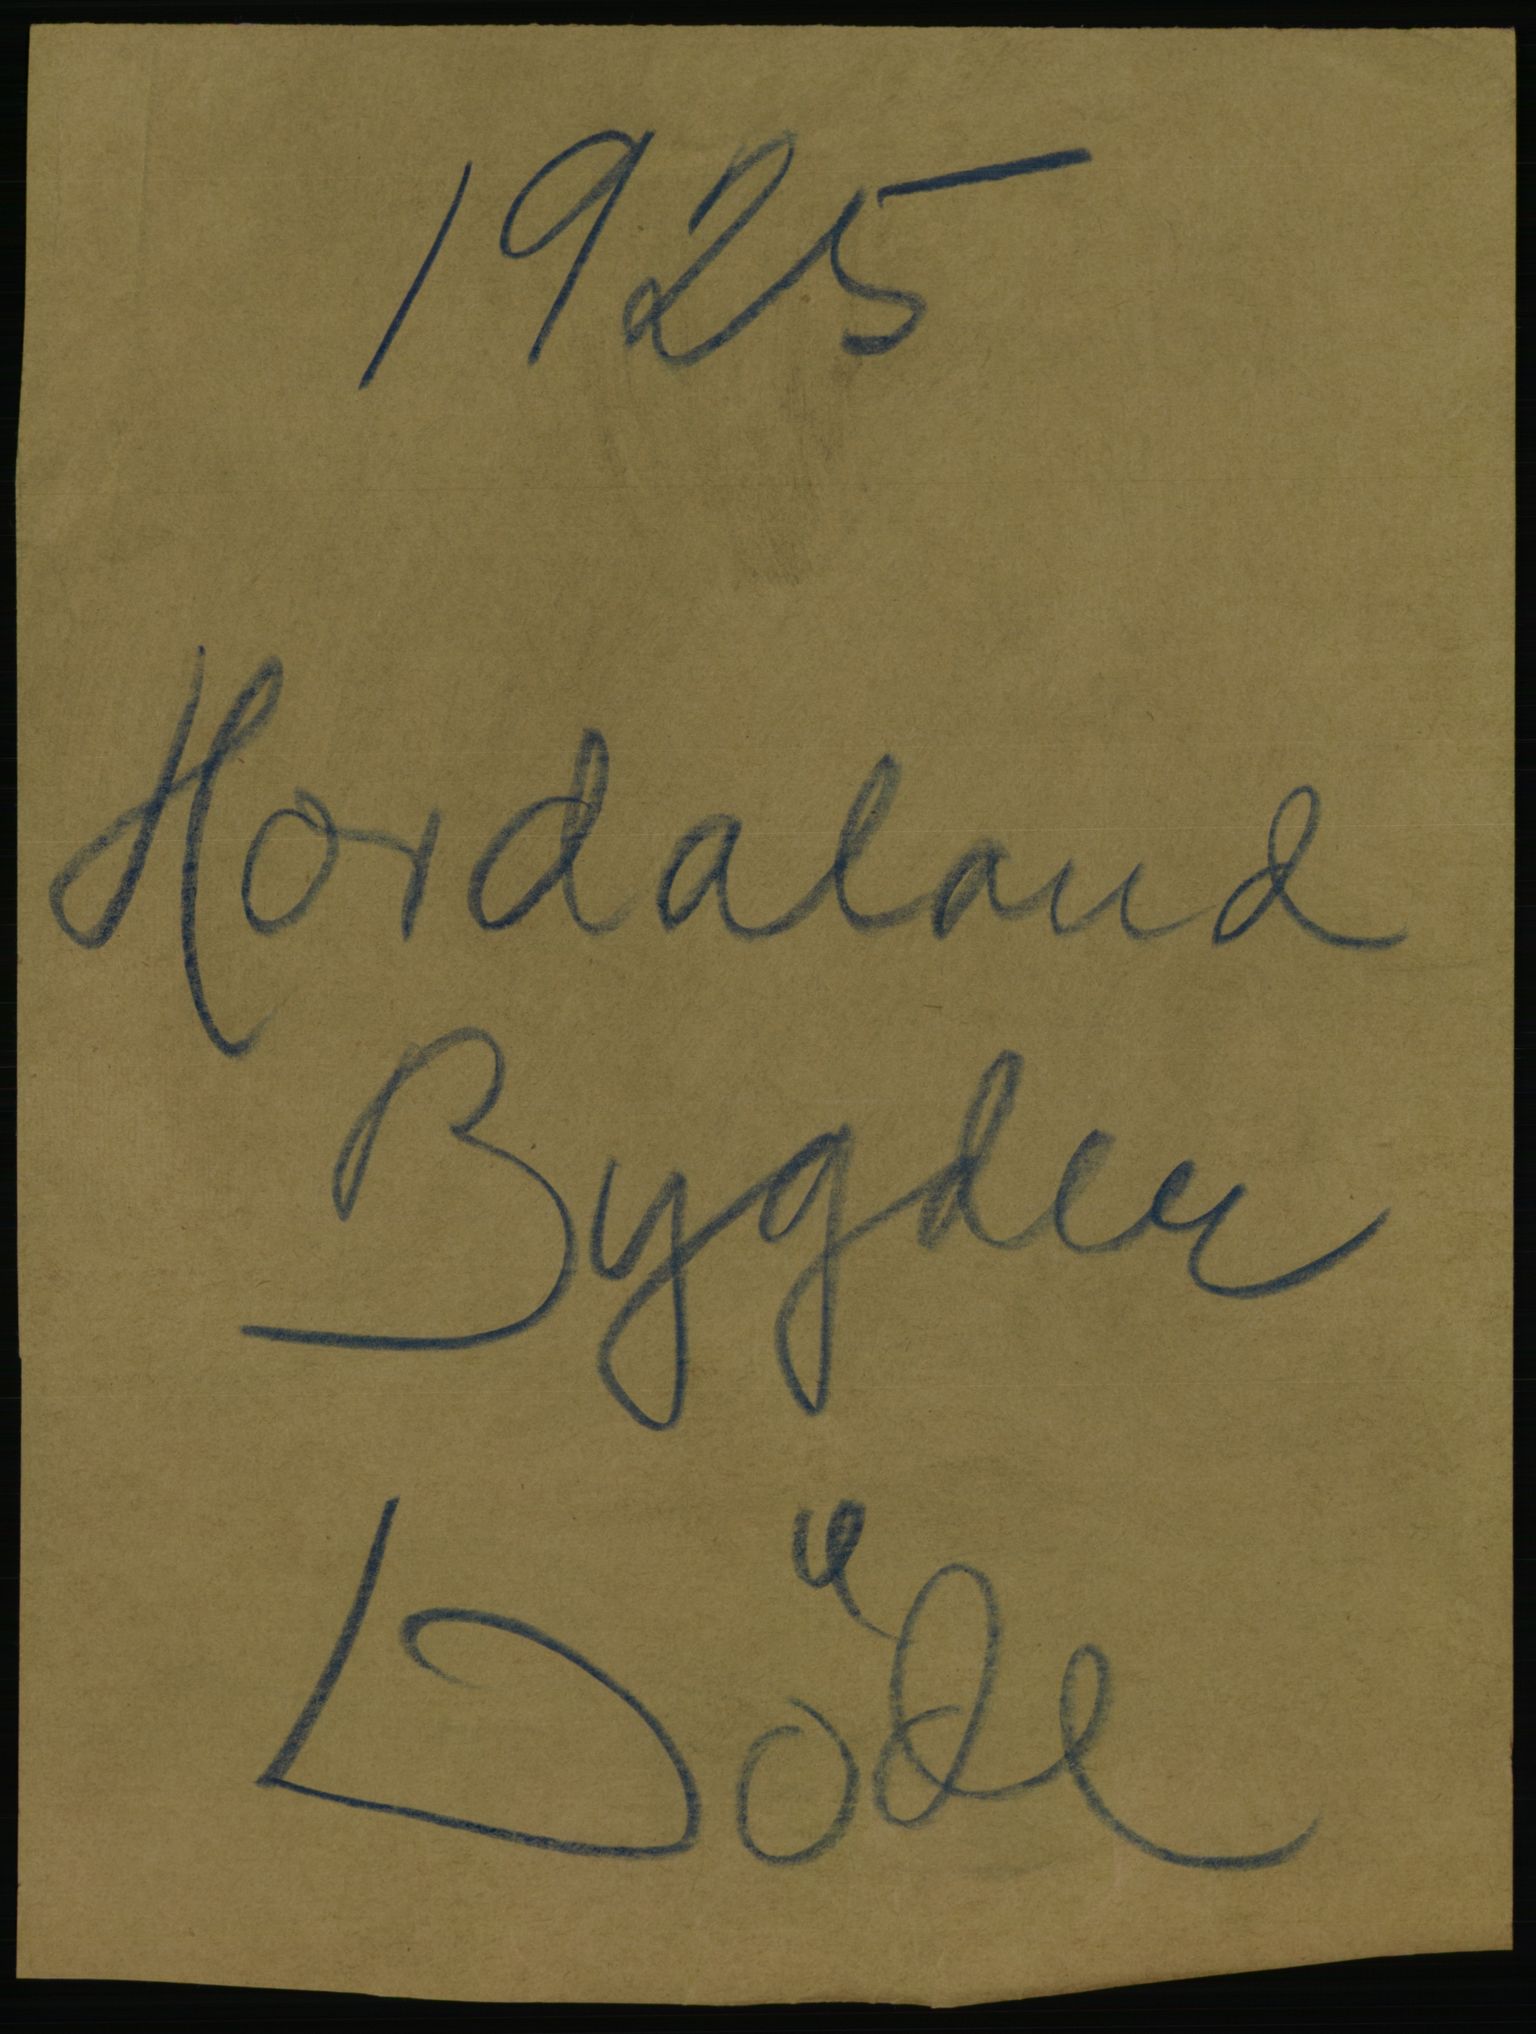 1925
Hordaland
Bygder
Döde